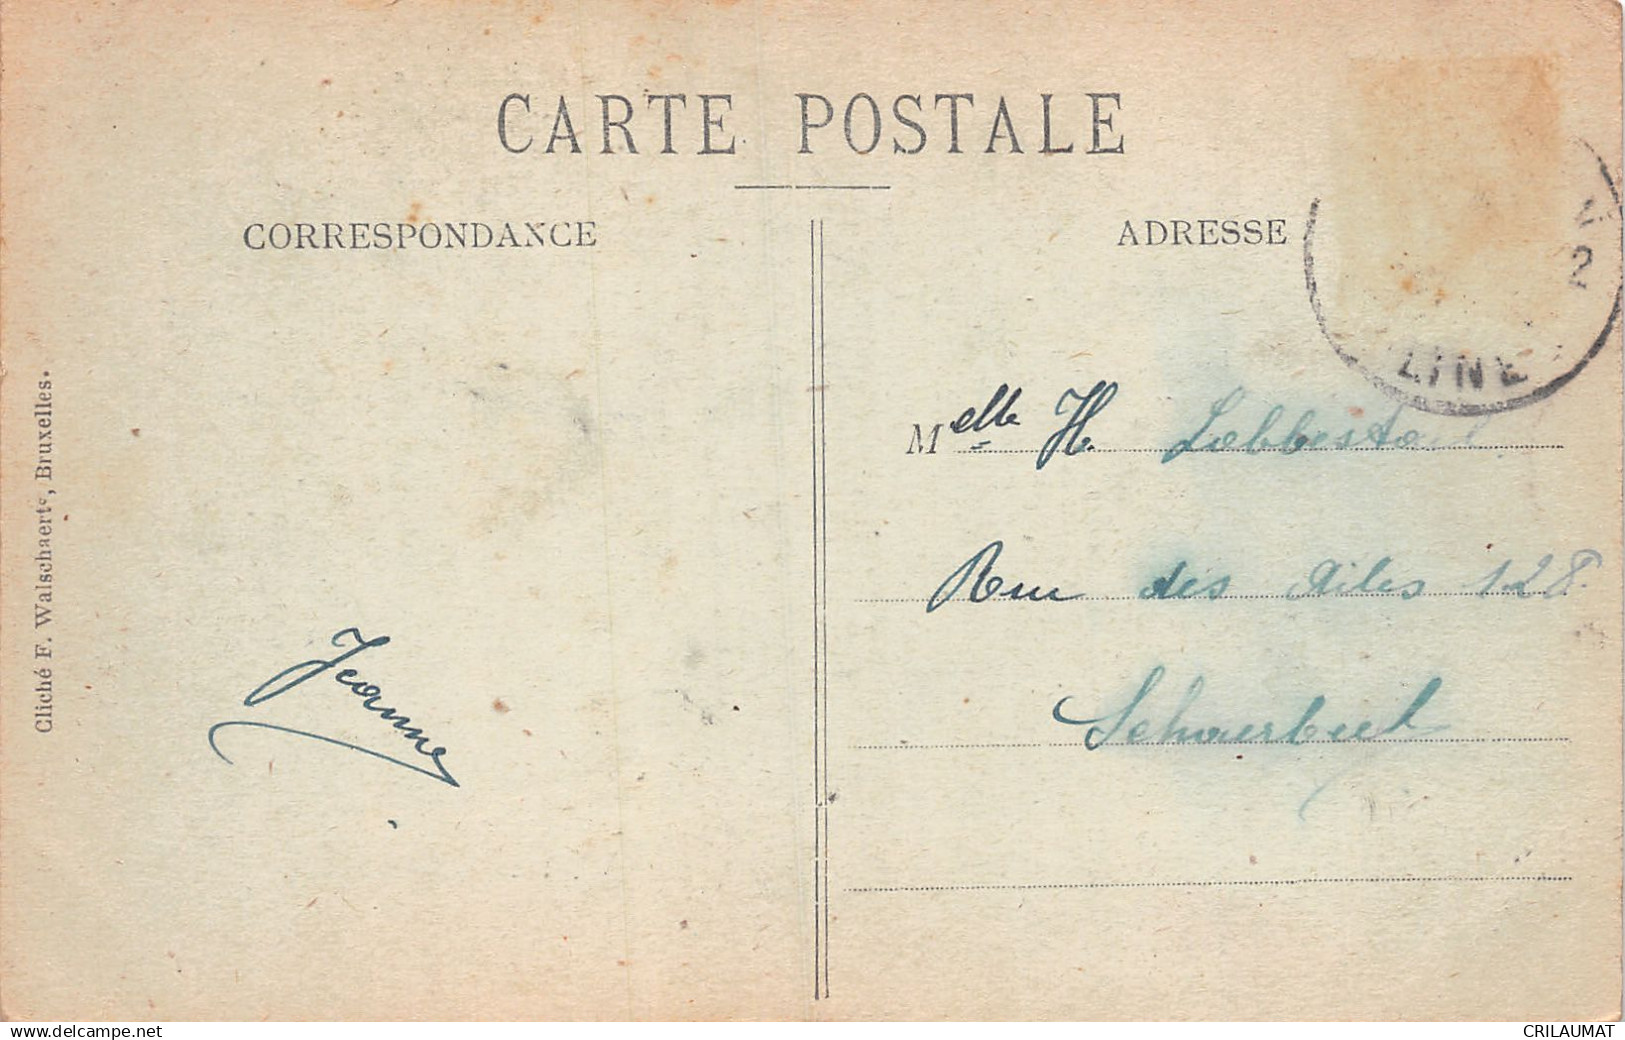 CARTE POSTALE
CORRESPONDANCE
ADRESSE
2
LINE
Melle H.
Rue des Ailes 128
Schaerbeek
Jeanne
Cliché F. Walschaerts, Bruxelles.
www.delcampe.net
CRILAUMAT